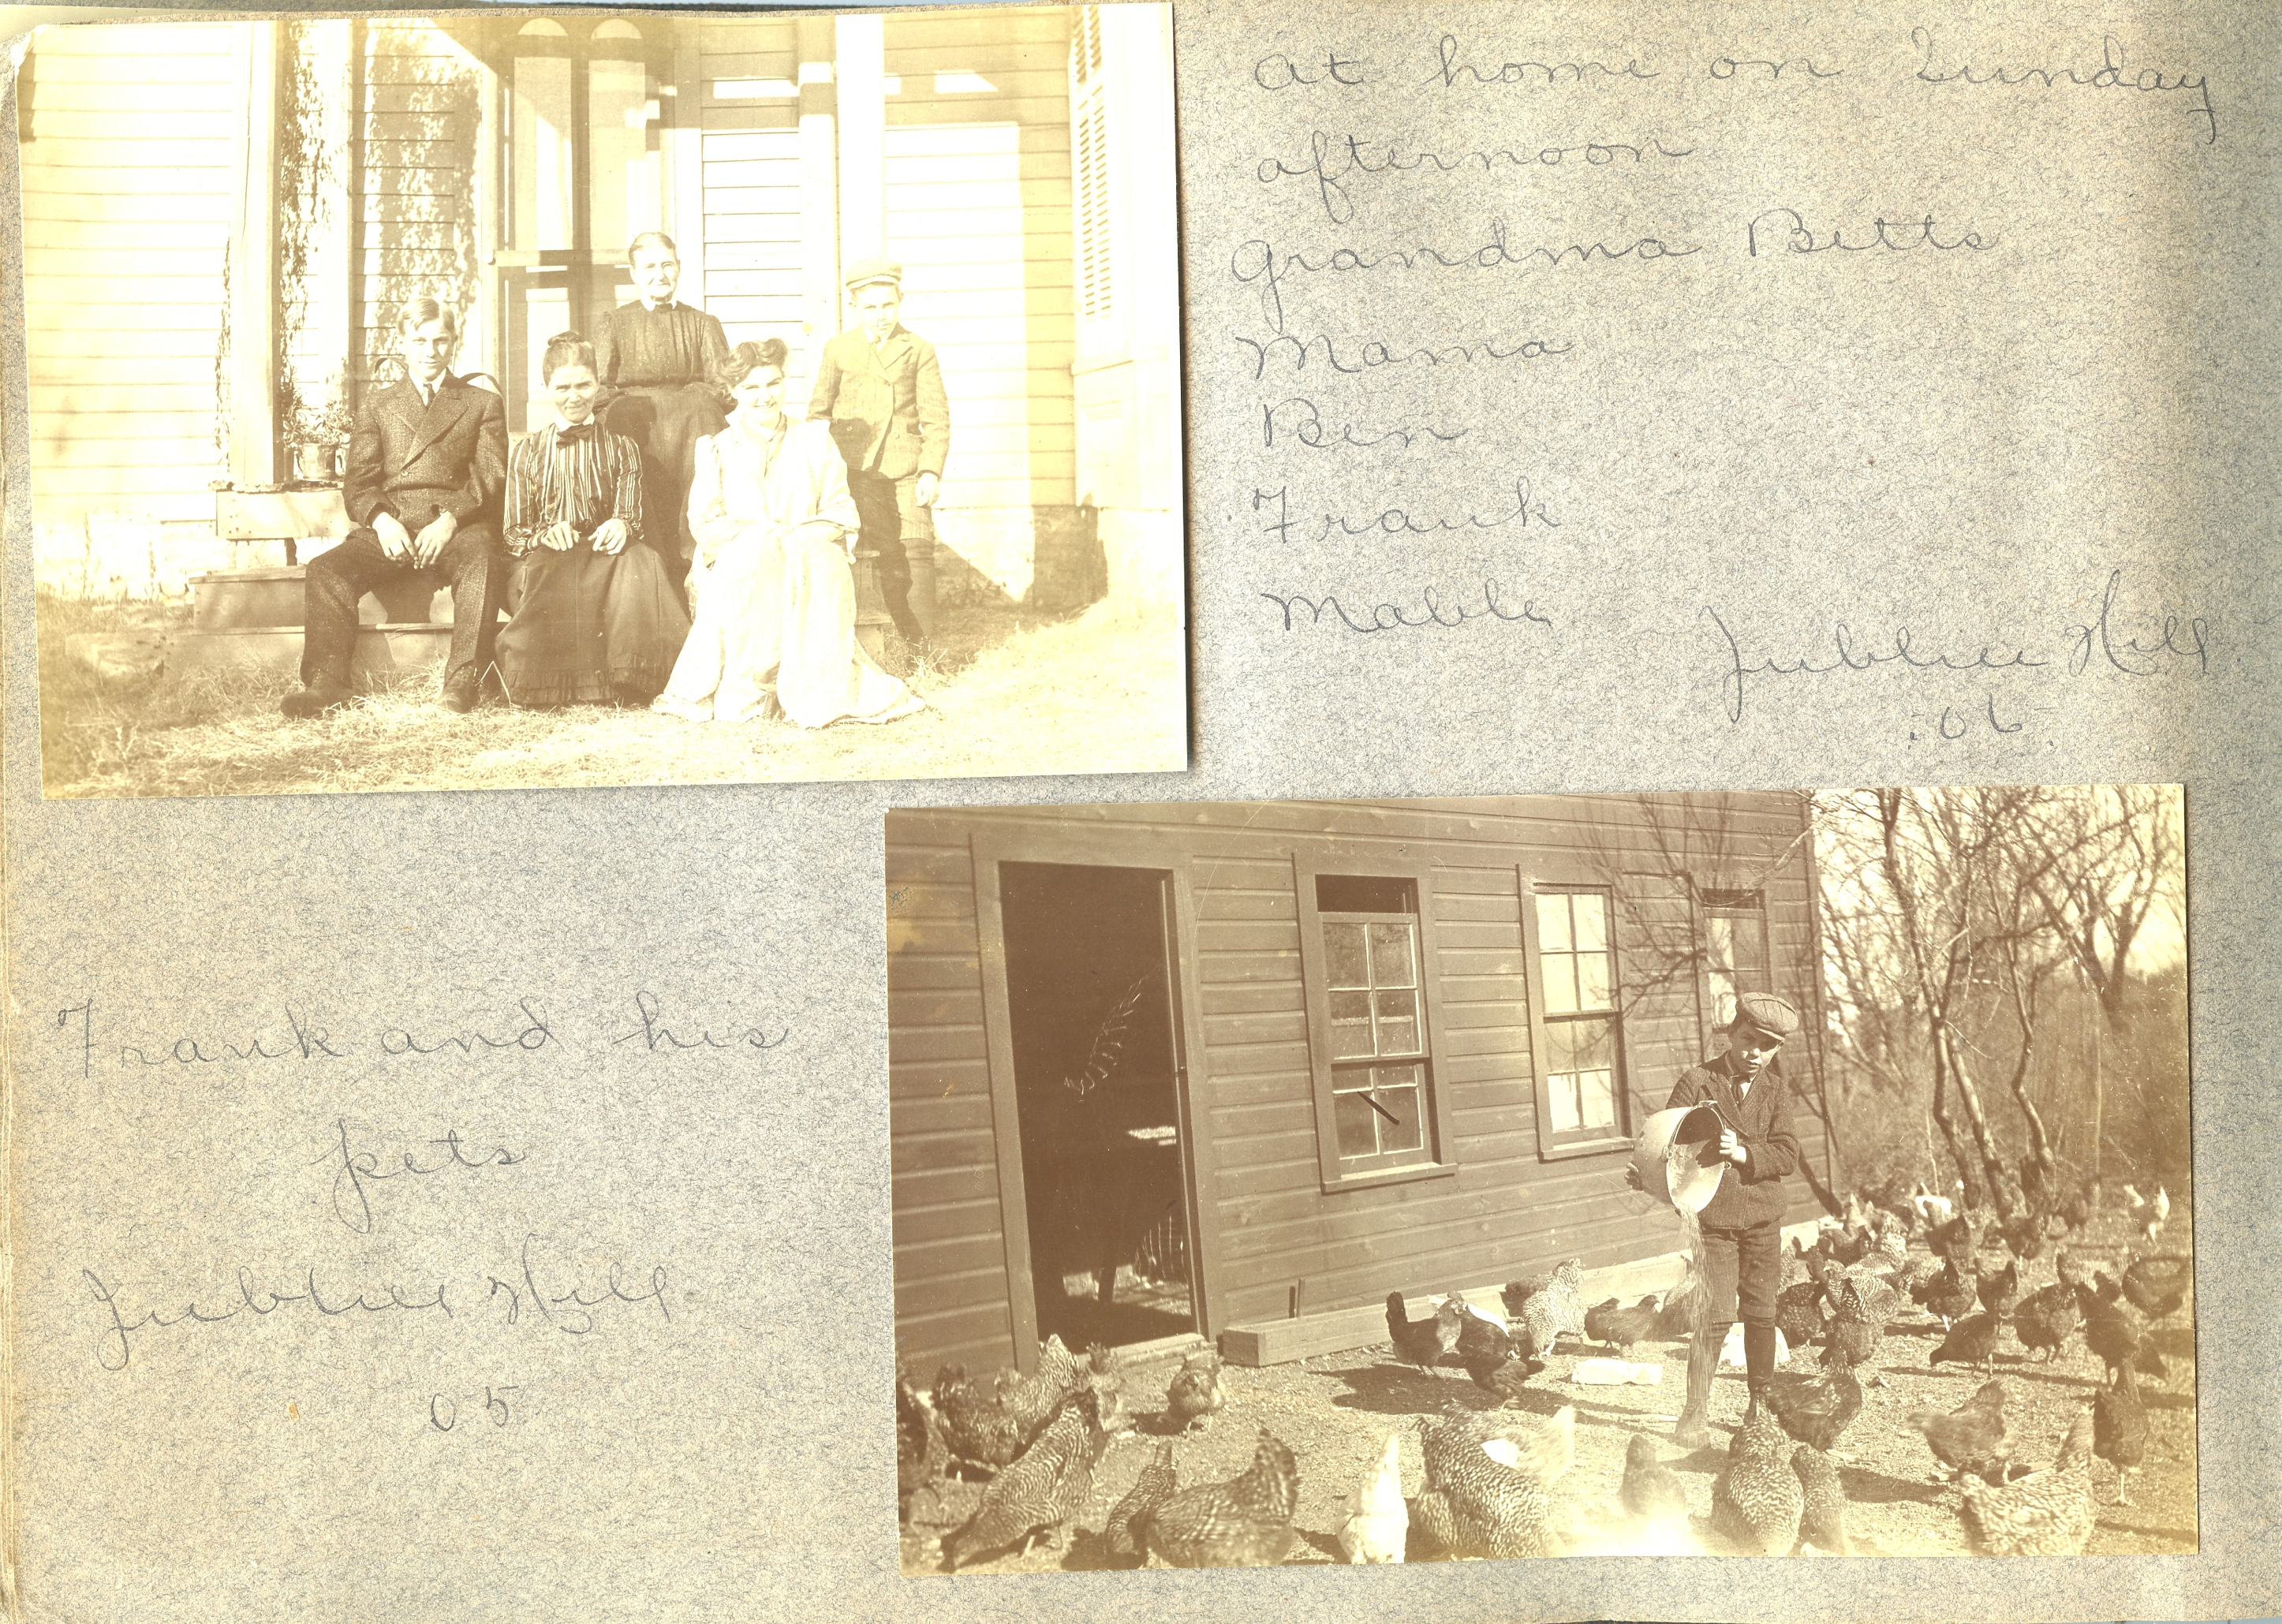 At home on Sunday
afternoon
Grandma Betts
Mama
Ben
Frank
Mable
Jubliee Hill
'06.
Frank and his
pets
Jubliee Hill
05